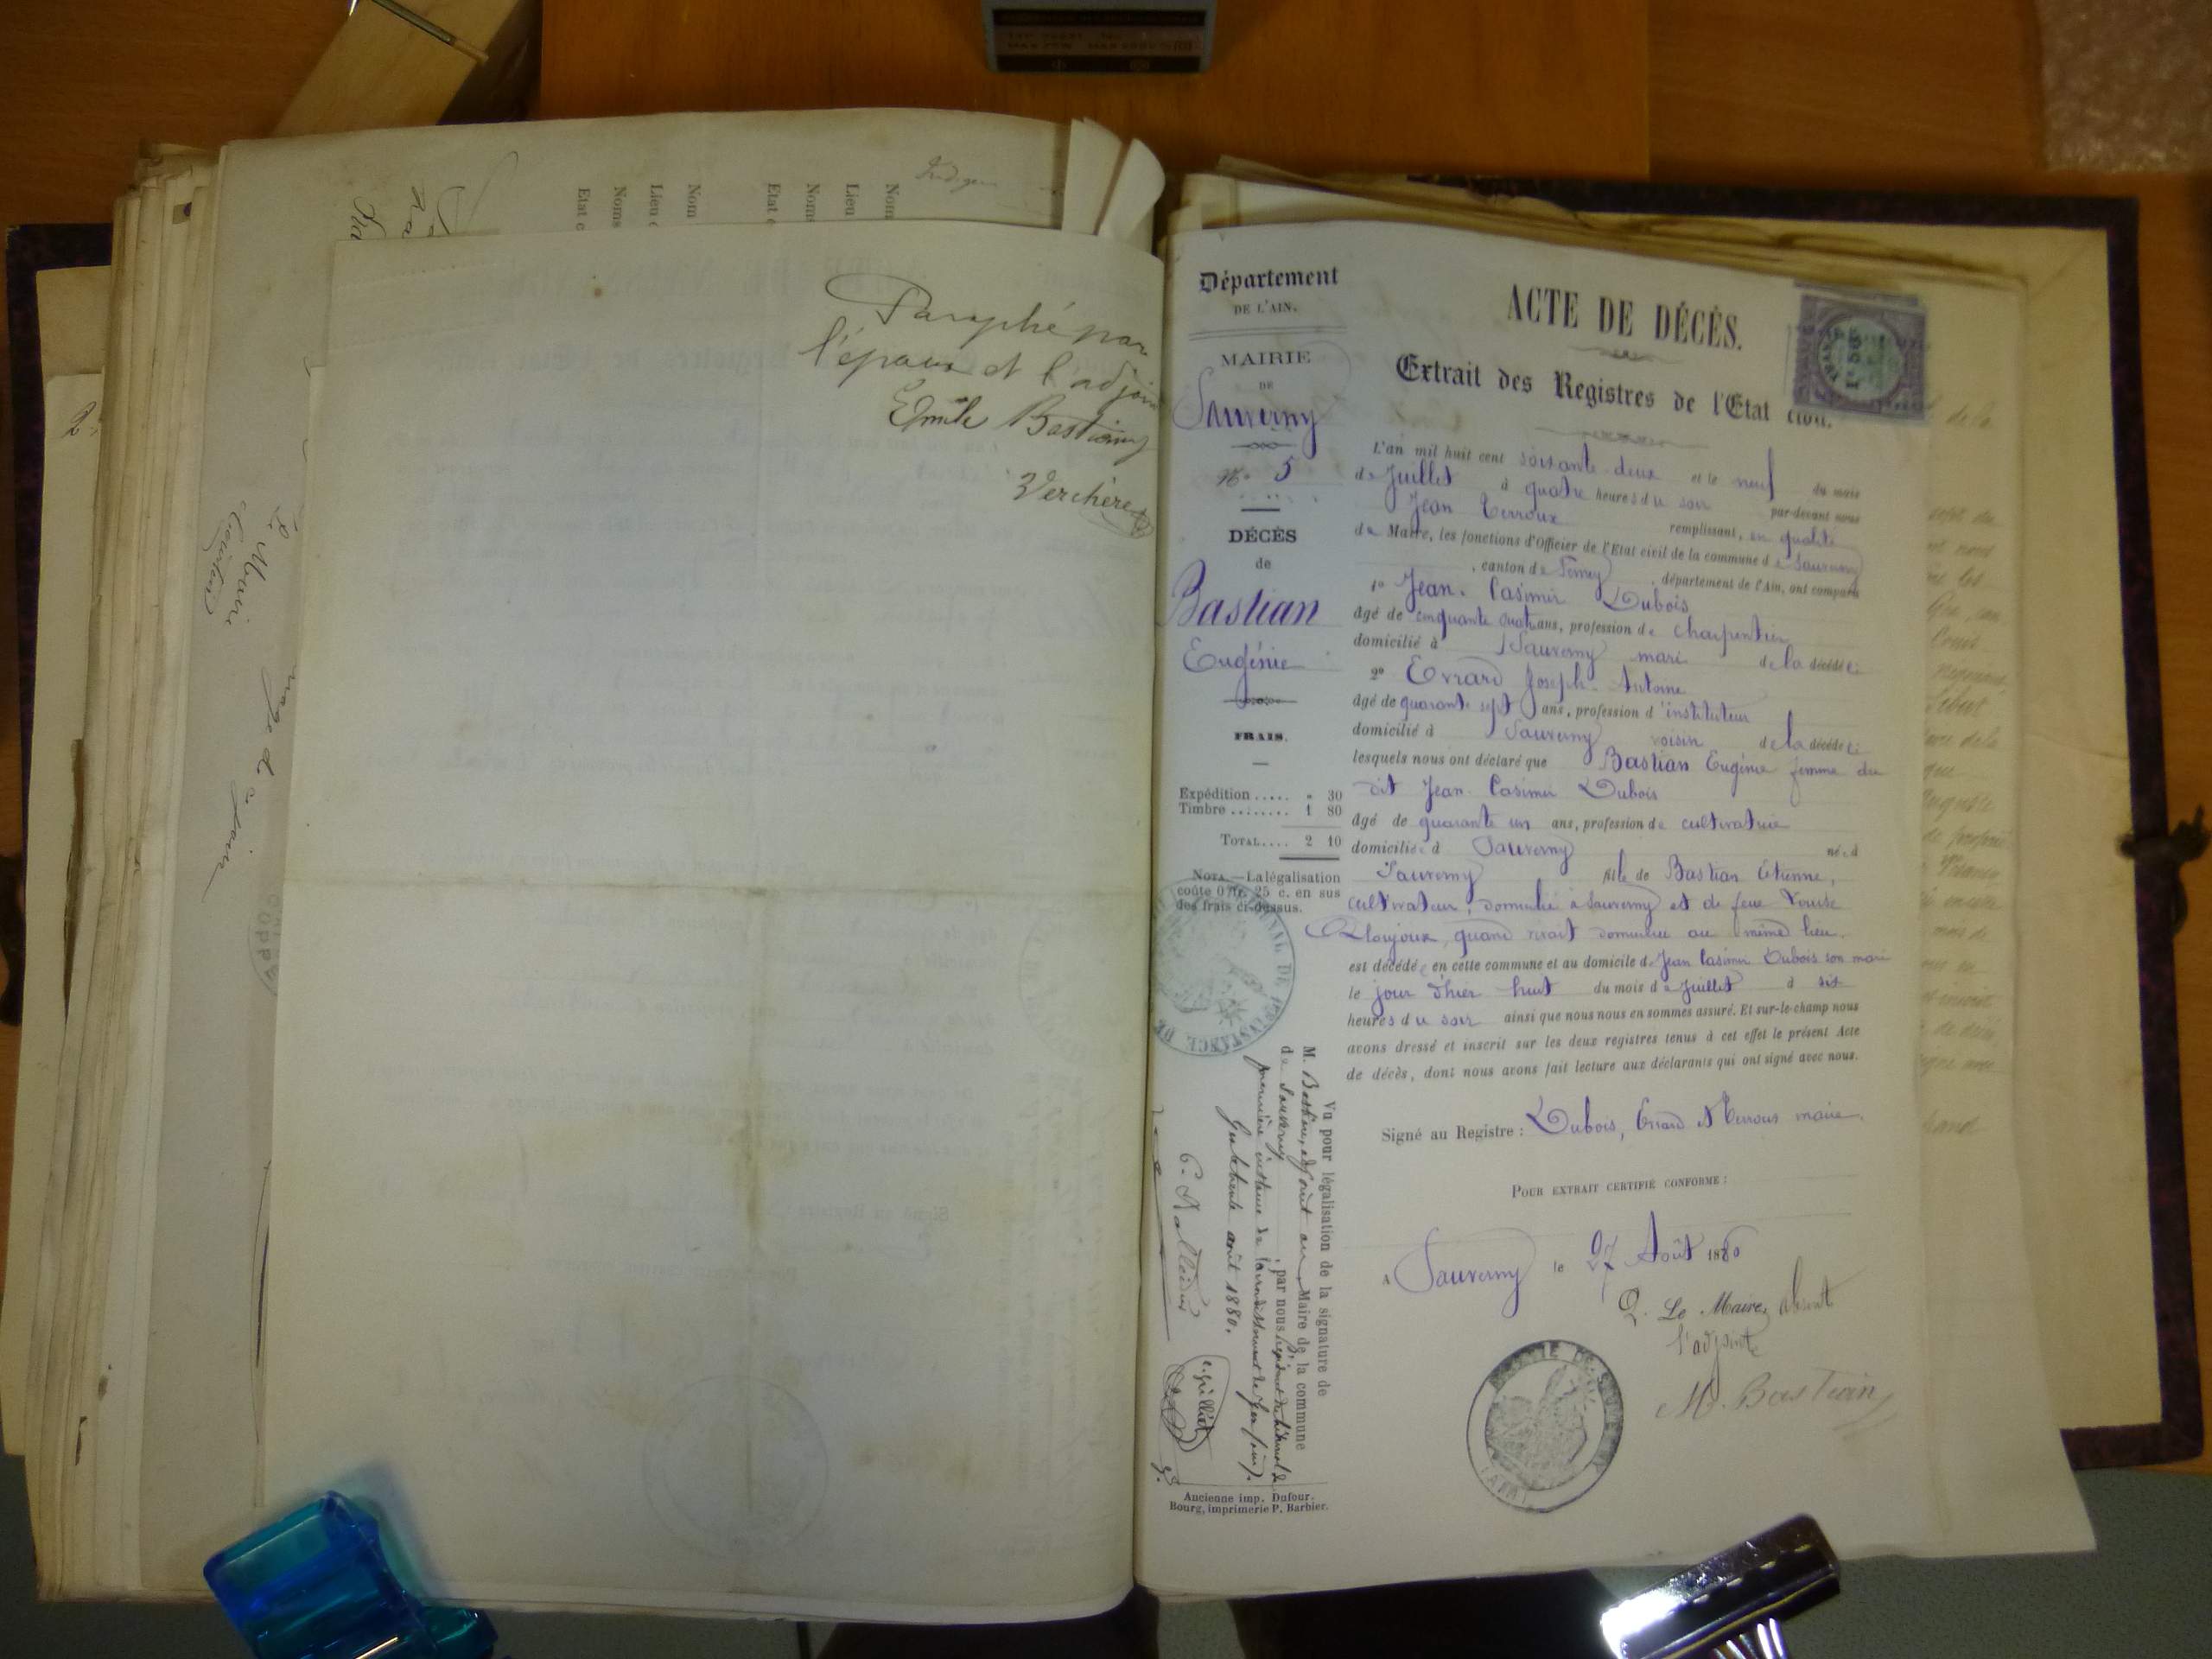 Nom
Lieu
Noms
Etat
Nom
Lieu
Noms
Etat
Paraphé par
l'époux et l'adjoint
Emile Bastian
Verchère
Le Maire
Département
DE L'AIN.
MAIRIE
DE
Sauverny
No 5
DÉCÈS
de
Bastian
Eugénie
FRAIS.
Expédition ..... " 30
Timbre ........ 1 80
TOTAL.... 2 10
NOTA.—La légalisation
coûte 0 fr. 25 c. en sus
des frais ci-dessus.
Vu pour légalisation de la signature de
M. Bastian, adjoint au Maire de la commune
de Sauverny, par nous, Président du tribunal de
première instance de l'arrondissement de Gex (Ain).
Gex, le trente août 1880.
Ancienne imp. Dufour.
Bourg, imprimerie P. Barbier.
ACTE DE DÉCÈS.
Extrait des Registres de l'Etat civil.
L'an mil huit cent soixante deux et le neuf du mois
de Juillet à quatre heures du soir par-devant nous
Jean Terroux remplissant, en qualité
de Maire, les fonctions d'Officier de l'Etat civil de la commune de Sauverny
, canton de Ferney, département de l'Ain, ont comparu
1º Jean Casimir Dubois
âgé de cinquante quatre ans, profession de charpentier
domicilié à Sauverny mari de la décédée
2º Evrard Joseph Antoine
âgé de quarante sept ans, profession d'instituteur
domicilié à Sauverny voisin de la décédée
lesquels nous ont déclaré que Bastian Eugénie femme du
dit Jean Casimir Dubois
âgé de quarante un ans, profession de cultivatrice
domiciliée à Sauverny née à
Sauverny fille de Bastian Etienne,
cultivateur, domicilié à Sauverny et de feue Louise
quand vivait domiciliée au même lieu.
est décédée en cette commune et au domicile de Jean Casimir Dubois son mari
le jour d'hier huit du mois de Juillet à six
heures du soir ainsi que nous nous en sommes assuré. Et sur-le-champ nous
avons dressé et inscrit sur les deux registres tenus à cet effet le présent Acte
de décès, dont nous avons fait lecture aux déclarants qui ont signé avec nous.
Signé au Registre : Dubois, Evrard et Terroux maire.
POUR EXTRAIT CERTIFIÉ CONFORME :
A Sauverny le 27 Août 1880
Le Maire absent
l'adjoint
M. Bastian